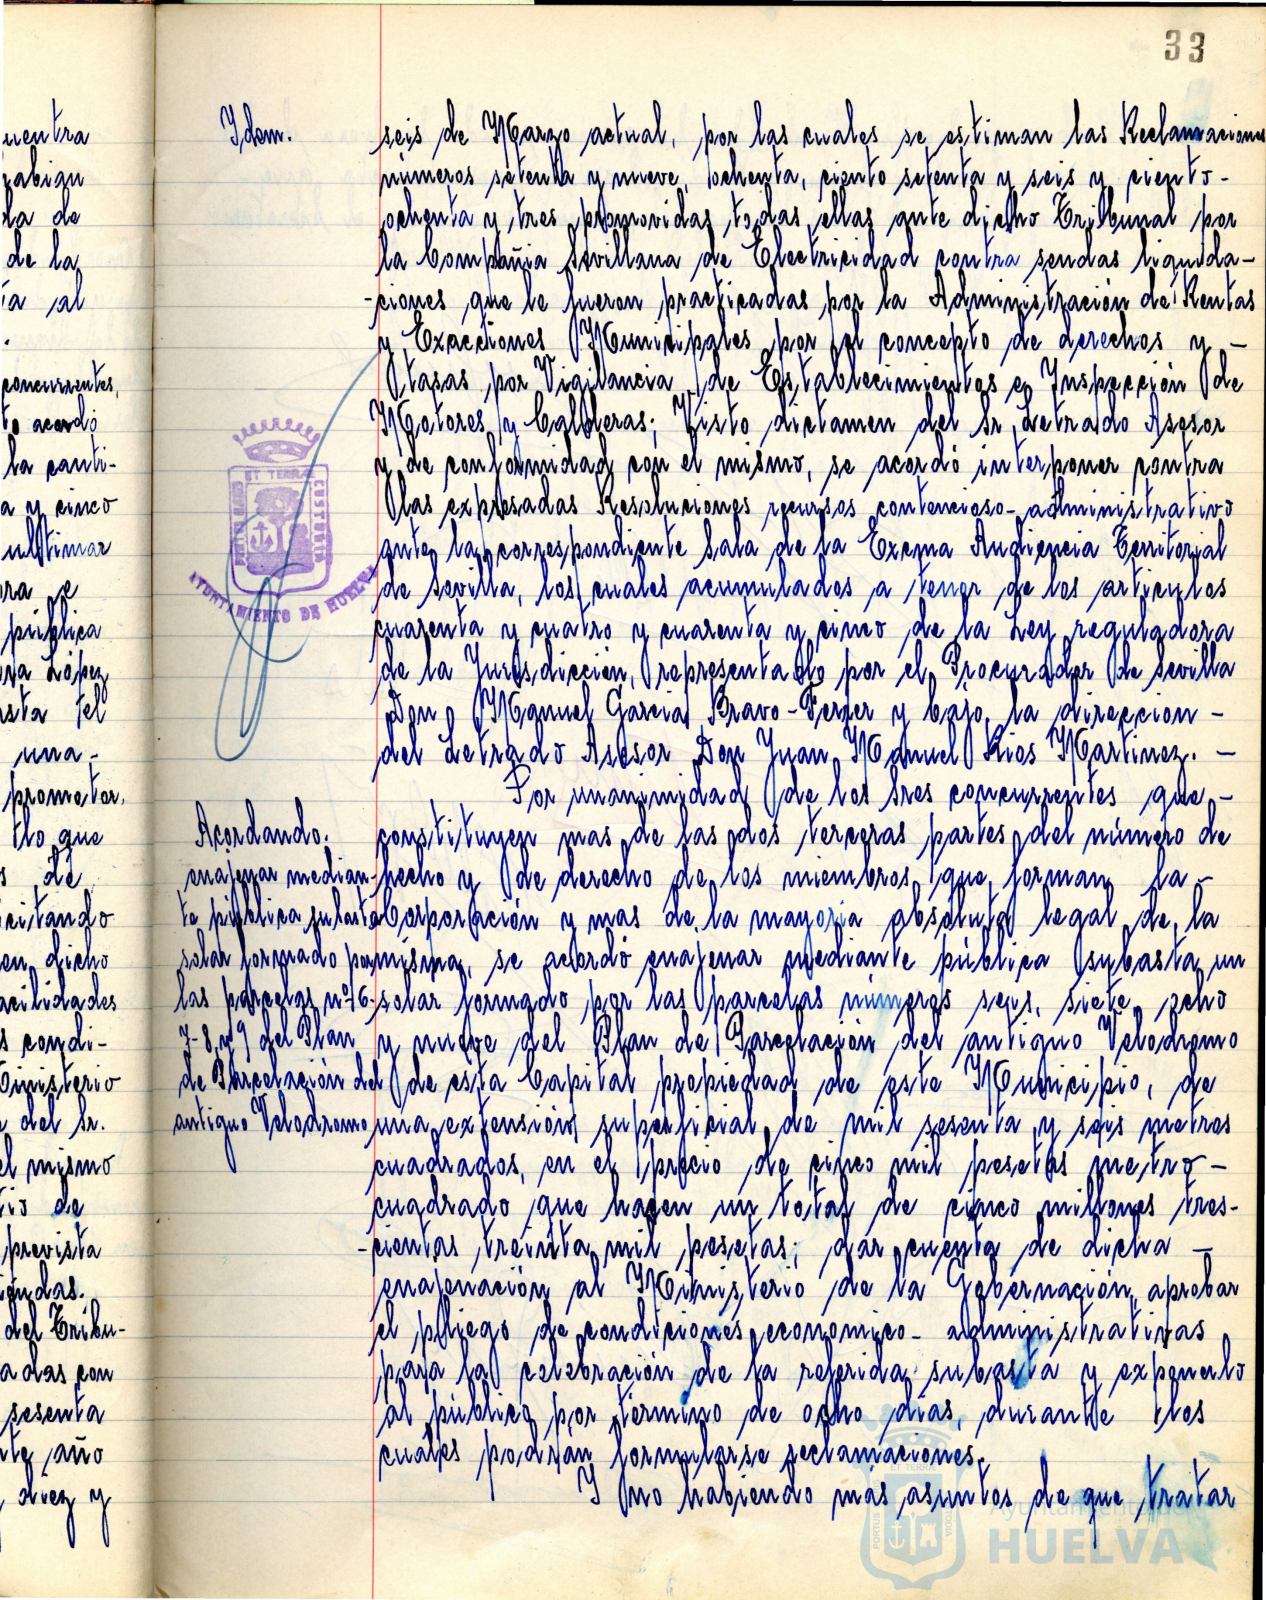 33
uentra
rabian
da de
de la
ía al
concurrentes,
to acordó
la canti-
a y cinco
ultimar
ora e
pública
ora López
sta tel
una-
prometer.
tlo que
s de
citando
en dicho
acilidades
s condi-
Ministerio
del Sr.
el mismo
tio de
prevista
gundas.
del Tribu-
adas con
sesenta
nte año
diez y
Idem.
seis de Marzo actual, por las cuales se estiman las Reclamaciones
números setenta y nueve, ochenta, ciento setenta y seis y ciento-
ochenta y tres promovidas todas ellas ante dicho Tribunal por
la Compañia Sevillana de Electricidad contra sendas liquida-
-ciones que le fueron practicadas por la Administración de Rentas
y Exacciones Municipales por el concepto de derechos y -
tasas por Vigilancia de Establecimientos e Inspección de
Motores y Calderas; Visto dictamen del Sr. Letrado Asesor
y de conformidad con el mismo, se acordó interponer contra
las expresadas Resoluciones recursos contencioso-administrativo
ante la correspondiente Sala de la Excma Audiencia Territorial
de Sevilla, los cuales acumulados a tenor de los articulos
cuarenta y cuatro y cuarenta y cinco de la Ley reguladora
de la Jurisdicción, representado por el Procurador de Sevilla
Don Manuel Garcia Bravo-Ferrer y bajo la direccion -
del Letrado Asesor Don Juan Manuel Rios Martinez. -
ET TERRAE CUSTODIA
PORTUS MARIS
AYUNTAMIENTO DE HUELVA
Por unanimidad de los Sres concurrentes que -
Acordando.
enajenar median-
te pública subasta
solar formado por
las parcelas nº 6-
7-8 y 9 del Plan
de Parcelación del
antiguo Velodromo
constituyen mas de las dos terceras partes del número de
hecho y de derecho de los miembros que forman la -
Corporación y mas de la mayoria absoluta legal de la
misma, se acordó enajenar mediante pública subasta un
solar formado por las parcelas números seis, siete, ocho
y nueve del Plan de Parcelación del antiguo Velodromo
de esta Capital propiedad de este Municipio, de
una extensión superficial de mil sesenta y seis metros
cuadrados, en el precio de cinco mil pesetas metro -
cuadrado que hacen un total de cinco millones tres-
-cientas treinta mil pesetas; dar cuenta de dicha -
enajenación al Ministerio de la Gobernación, aprobar
el pliego de condiciones economico-administrativas
para la celebración de la referida subasta y exponerlo
al público por término de ocho dias, durante los
cuales podrán formularse reclamaciones.
Y no habiendo más asuntos de que tratar
ET TERRAE
PORTUS
CUSTODIA
Ayuntamiento de
HUELVA